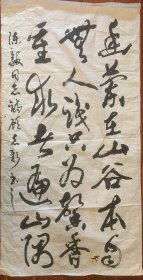 幽蘭在山谷本自
無人識只為馨香
重求者遍山隅
陳毅同志詩